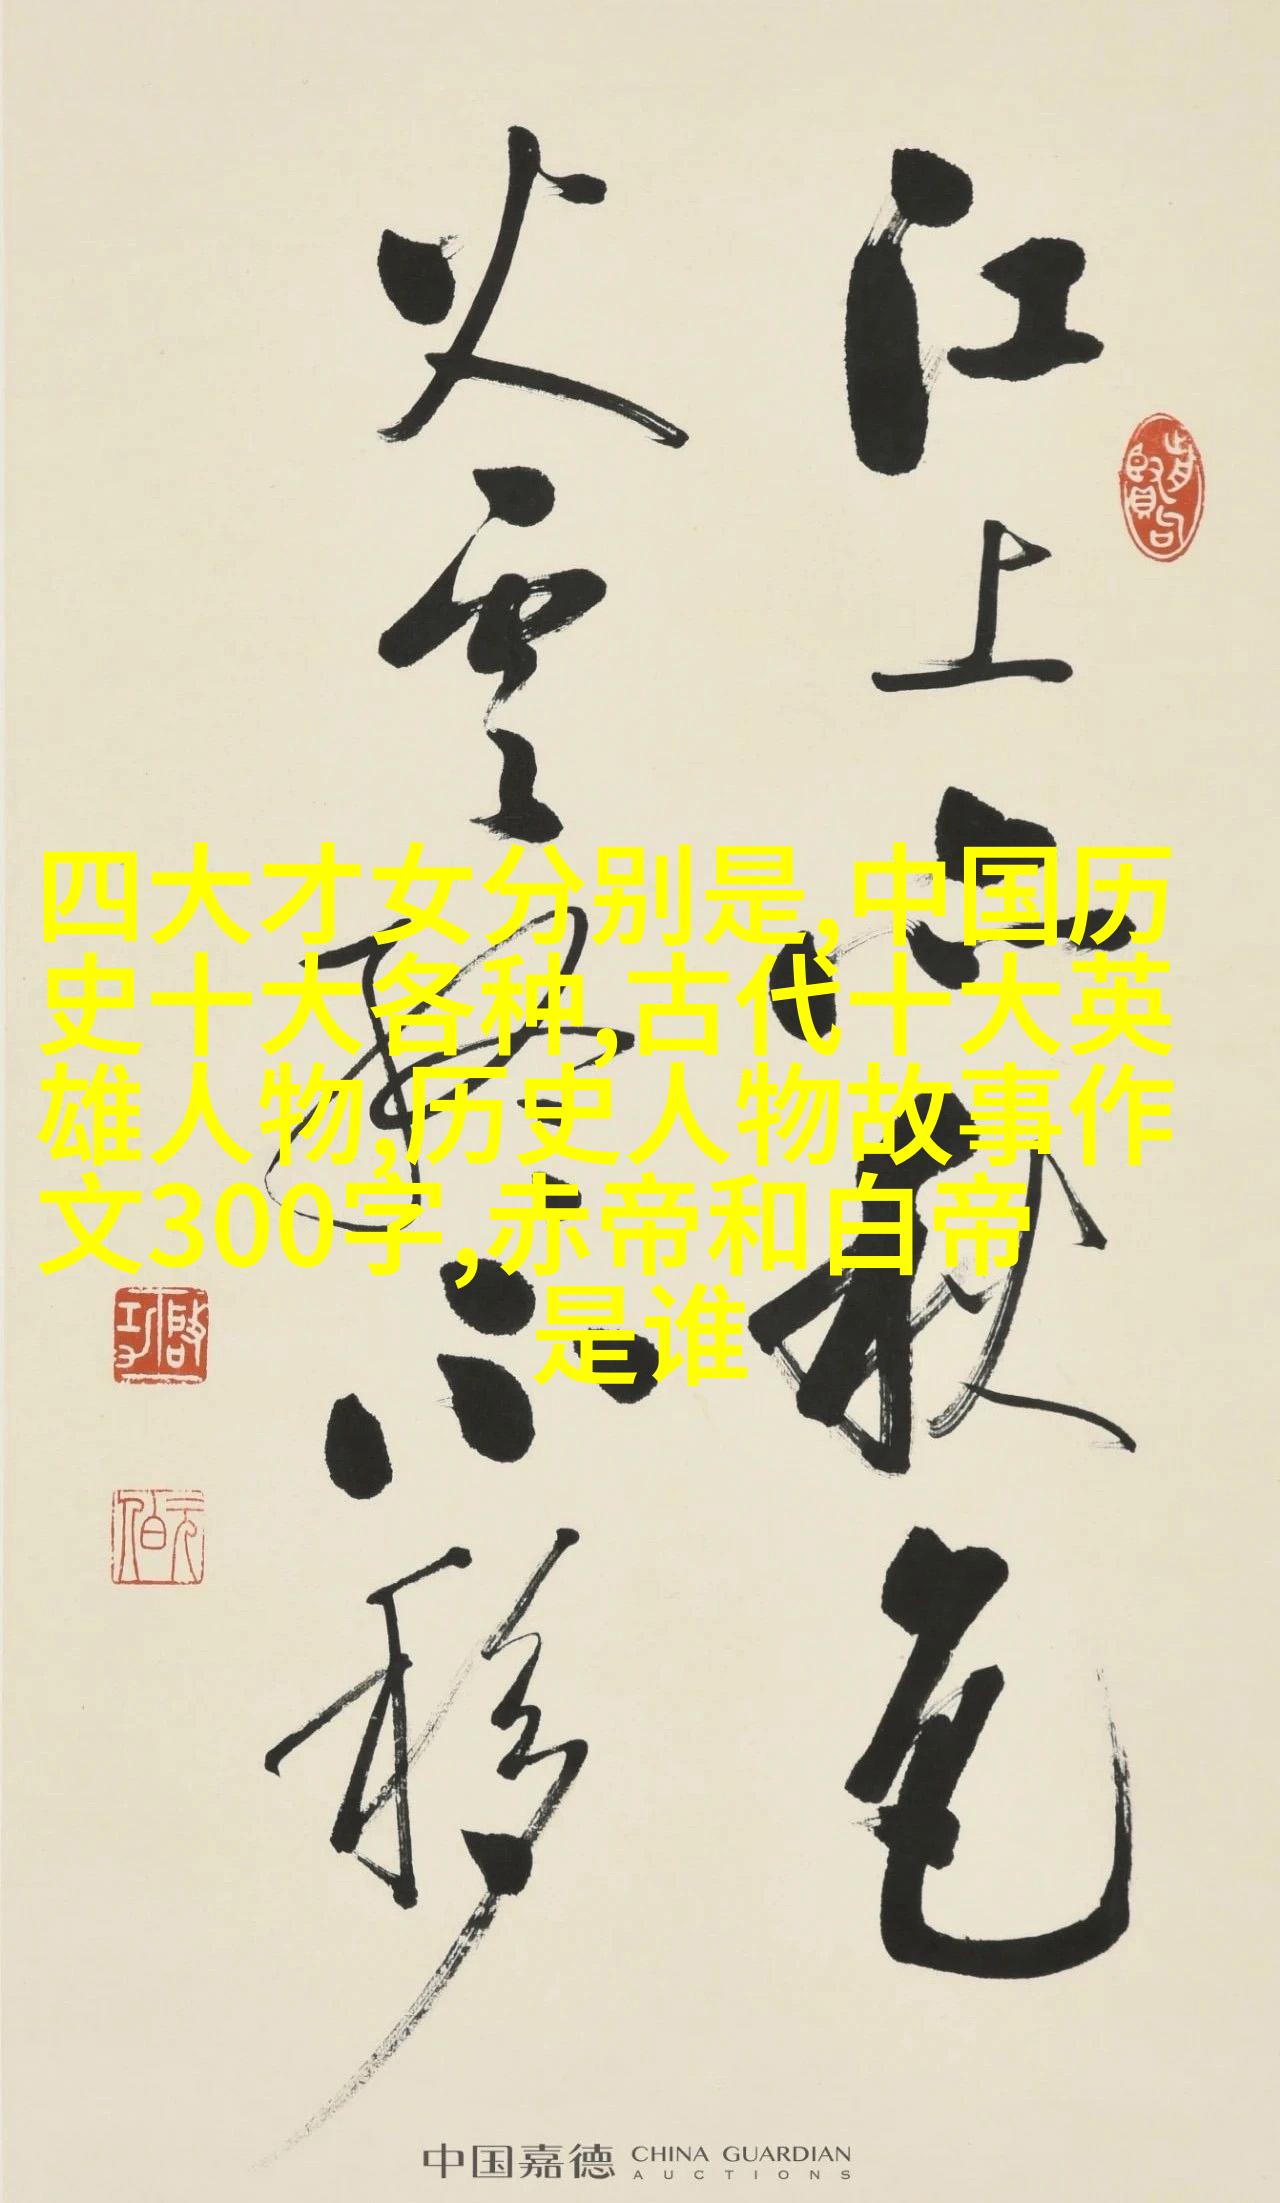 江上亦秋色
火雲終不移
啟功
元伯
四大才女分别是,中国历
史十大各种,古代十大英
雄人物,历史人物故事作
文300字,赤帝和白帝
是谁
中国嘉德 CHINA GUARDIAN
AUCTIONS